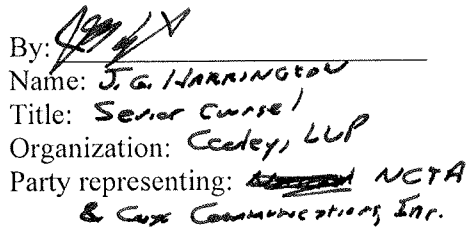 By:
Name: J. G. HARRINGTON
Title: Senior Counsel
Organization: Cooley, LLP
Party representing: NCTA
& Cox Communications, Inc.